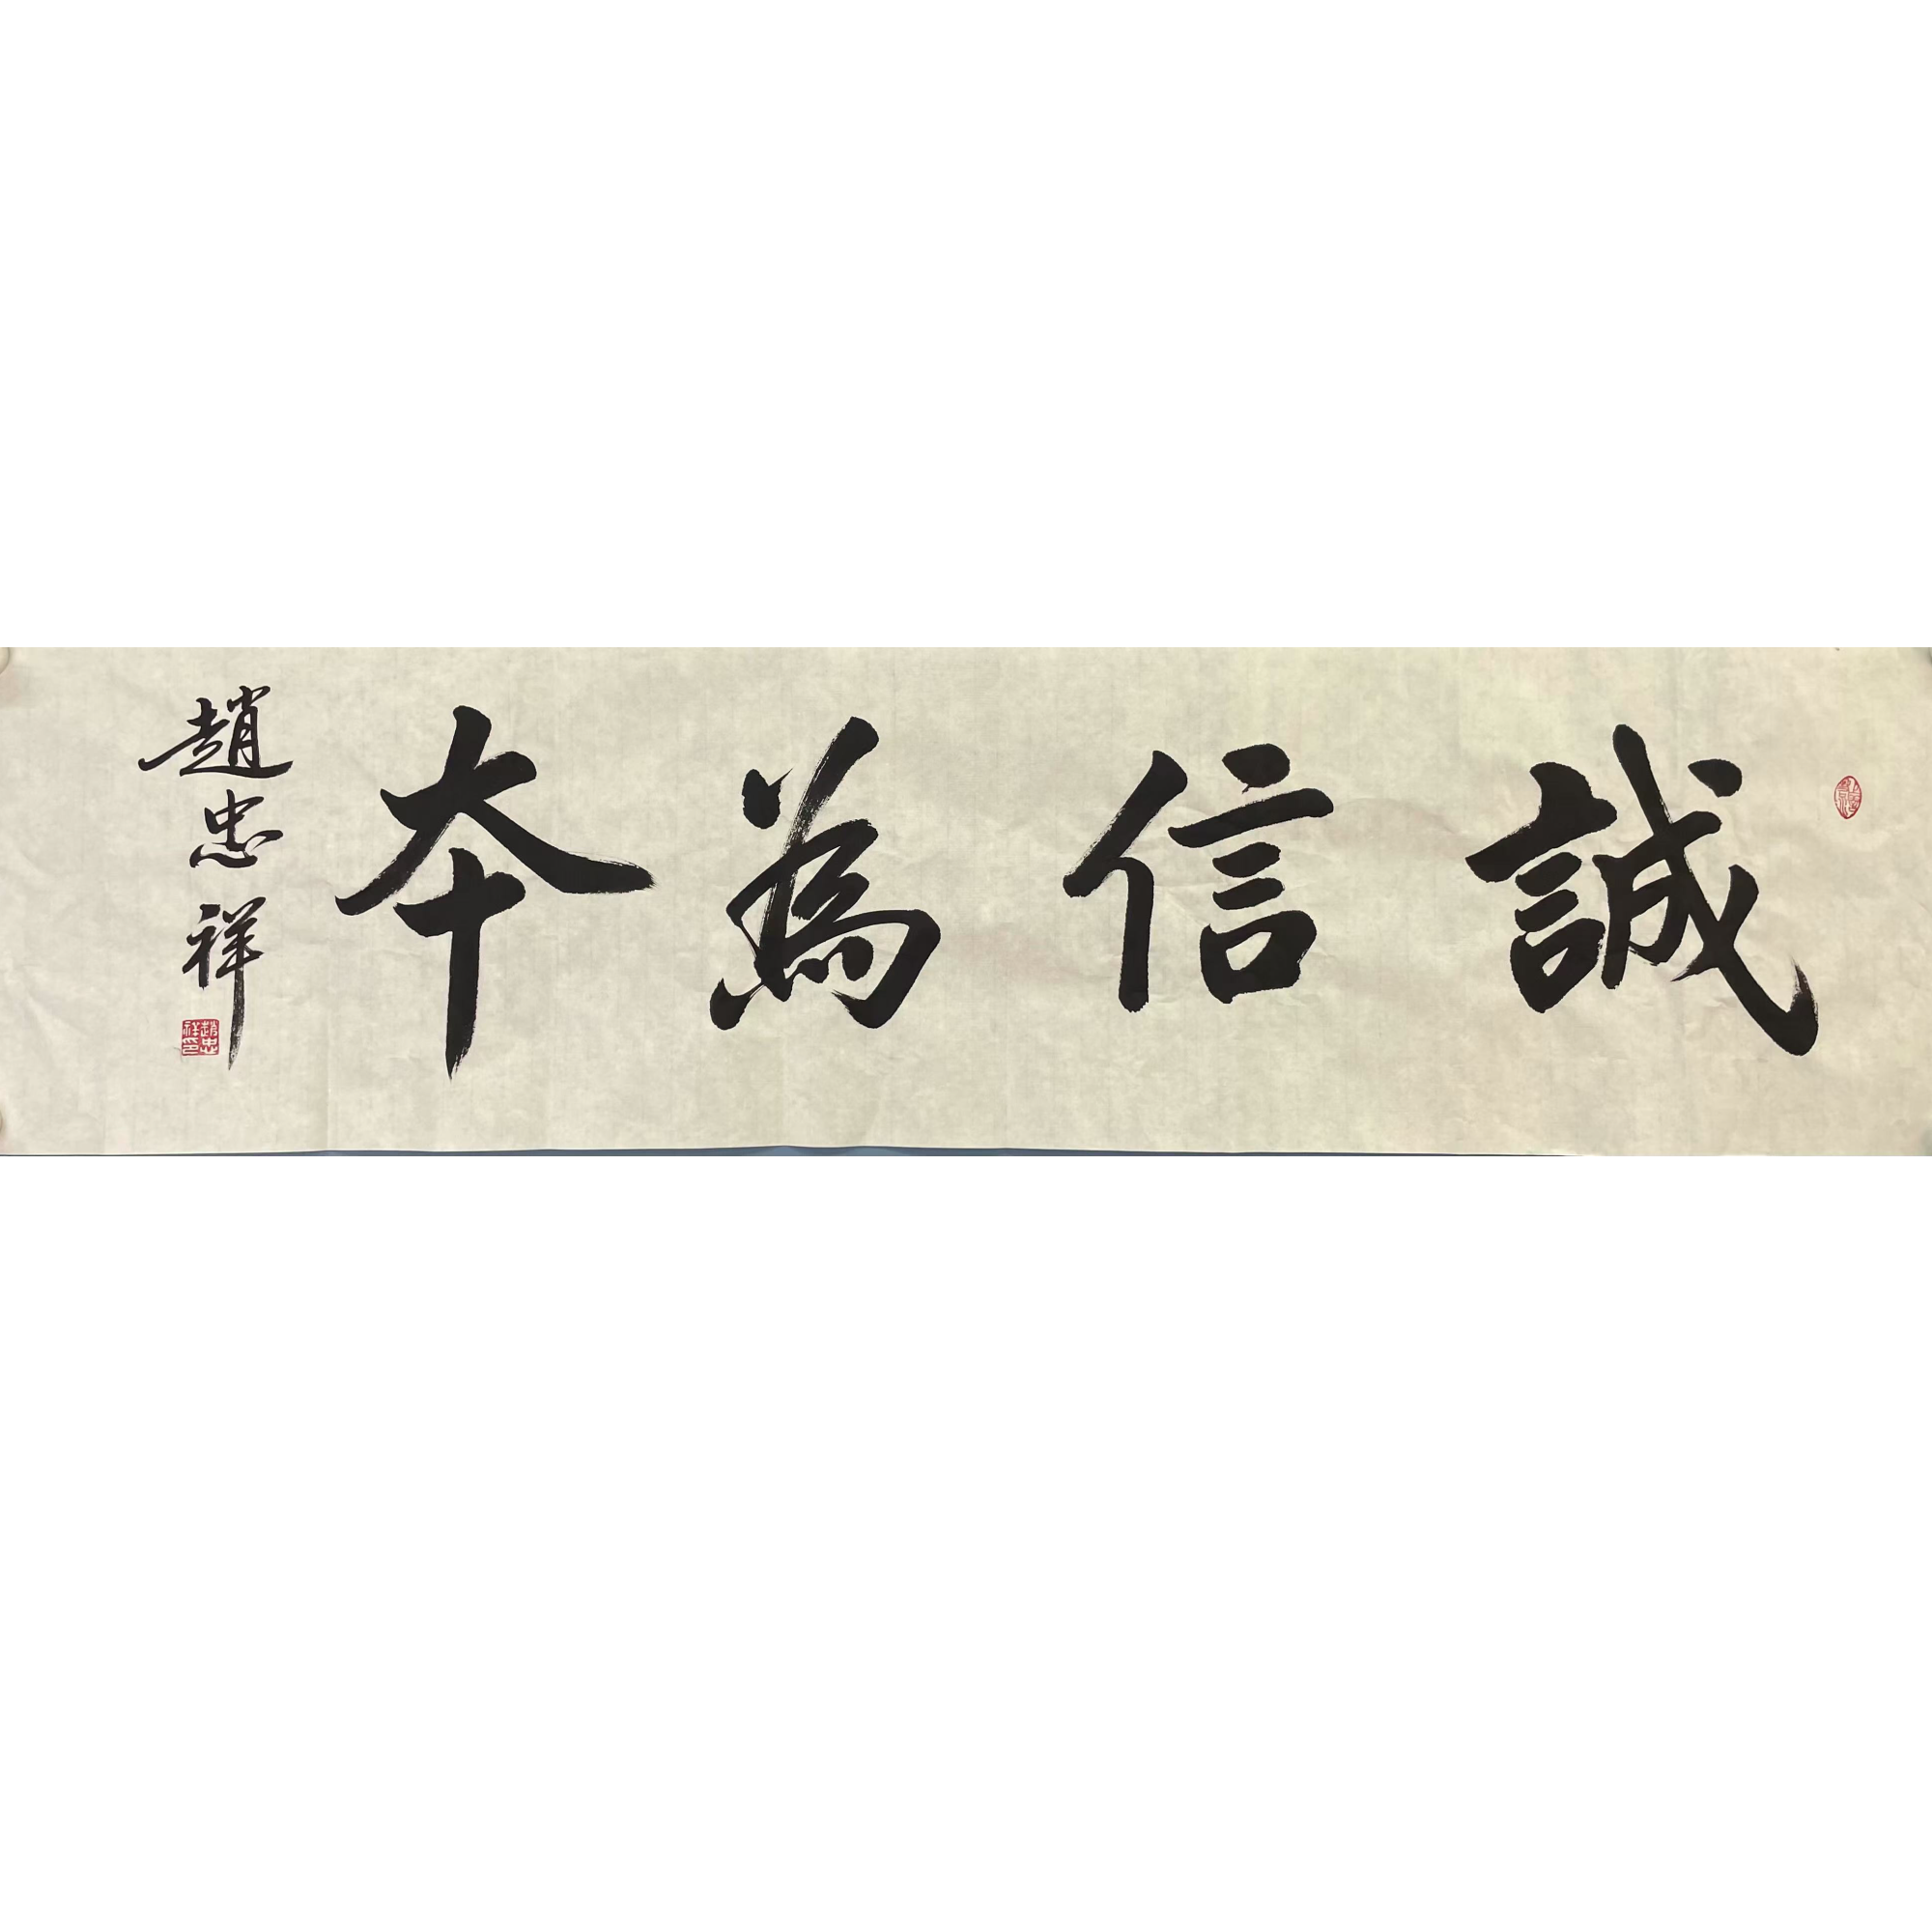 誠信為本
趙忠祥
趙忠祥印